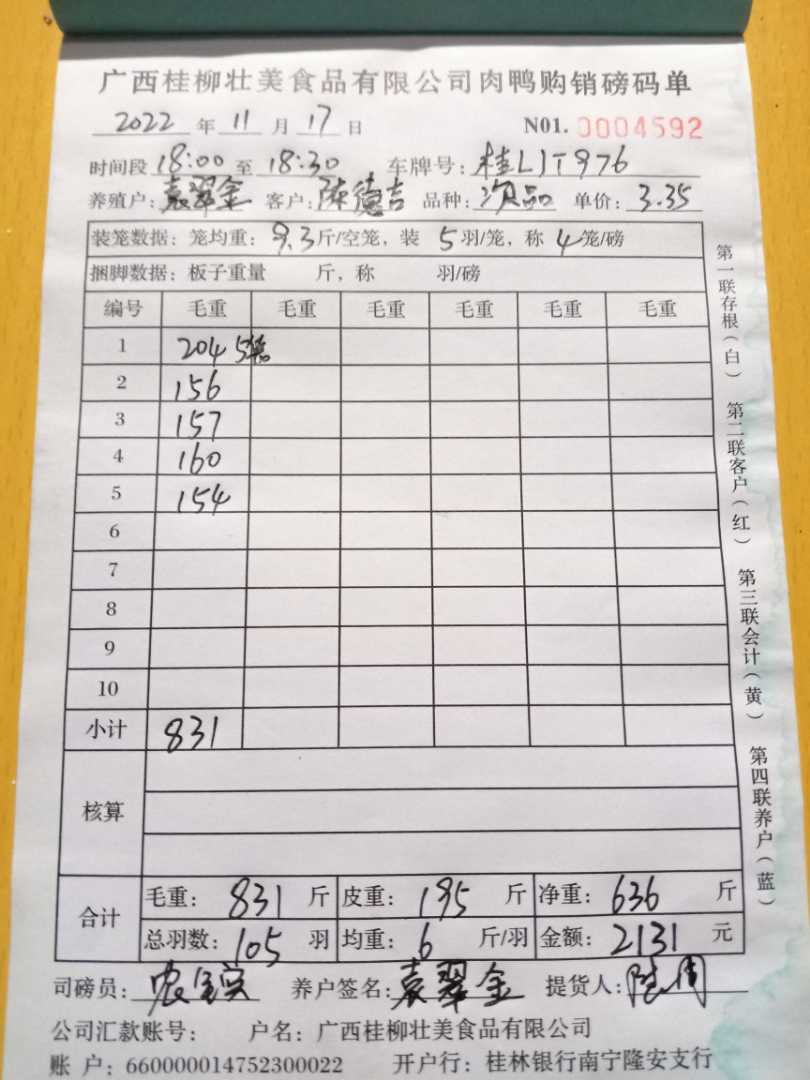 广西桂柳壮美食品有限公司肉鸭购销磅码单
2022 年 11 月 17 日 N01. 0004592
时间段 18:00 至 18:30 车牌号: 桂LJT976
养殖户: 袁翠金 客户: 陈德吉 品种: 次品 单价: 3.35
装笼数据: 笼均重: 9.3 斤/空笼, 装 5 羽/笼, 称 4 笼/磅
捆脚数据: 板子重量 斤, 称 羽/磅
编号 毛重 毛重 毛重 毛重 毛重 毛重
1 204 5笼
2 156
3 157
4 160
5 154
6
7
8
9
10
小计 831
核算
合计 毛重: 831 斤 皮重: 195 斤 净重: 636 斤
总羽数: 105 羽 均重: 6 斤/羽 金额: 2131 元
司磅员: 养户签名: 袁翠金 提货人:
公司汇款账号: 户名: 广西桂柳壮美食品有限公司
账 户: 660000014752300022 开户行: 桂林银行南宁隆安支行
第一联存根(白) 第二联客户(红) 第三联会计(黄) 第四联养户(蓝)